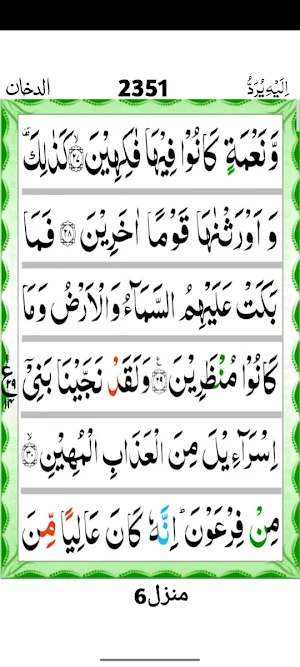 الدخان 2351 اِلَيْهِ يُرَدُّ
وَّ نَعْمَةٍ كَانُوْا فِيْهَا فٰكِهِيْنَ ۙ﴿۲۷﴾ كَذٰلِكَ ۫
وَ اَوْرَثْنٰهَا قَوْمًا اٰخَرِيْنَ ﴿۲۸﴾ فَمَا
بَكَتْ عَلَيْهِمُ السَّمَآءُ وَالْاَرْضُ وَمَا
كَانُوْا مُنْظَرِيْنَ ﴿۲۹﴾ وَلَقَدْ نَجَّيْنَا بَنِيْۤ
اِسْرَآءِيْلَ مِنَ الْعَذَابِ الْمُهِيْنِ ۙ﴿۳۰﴾
مِنْ فِرْعَوْنَ ؕ اِنَّهٗ كَانَ عَالِيًا مِّنَ
منزل 6